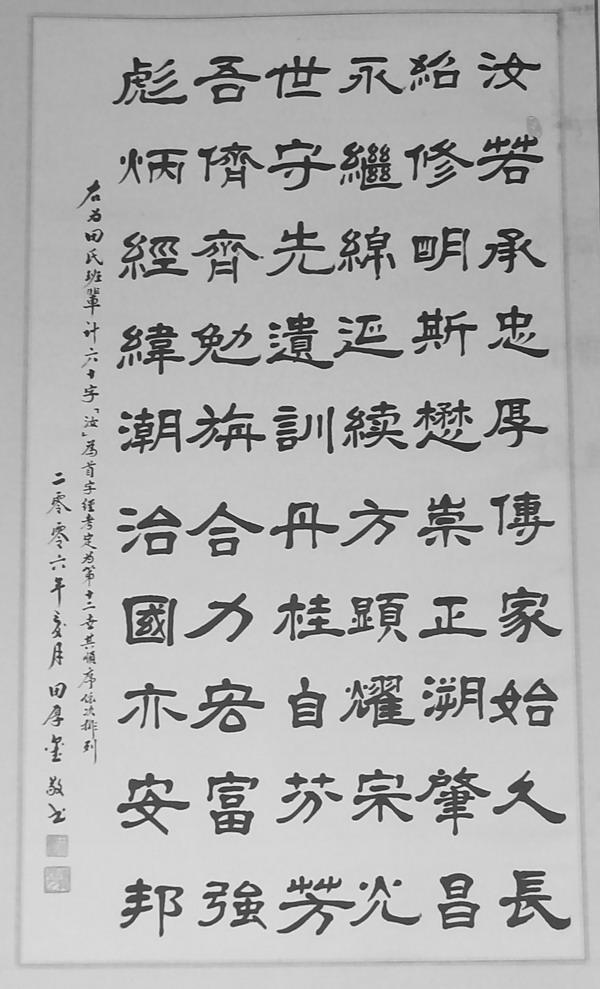 汝若承忠厚傳家始久長
紹修明斯懋崇正朔肇昌
永繼綿延续方顯耀宗光
世守先遺訓丹桂自芬芳
吾儕齊勉旃合力宏富強
彪炳經緯潮治國亦安邦
右为田氏班輩计六十字「汝」為首字經考定为第十二世其順序依次排列
二零零六年夏月田厚金敬书